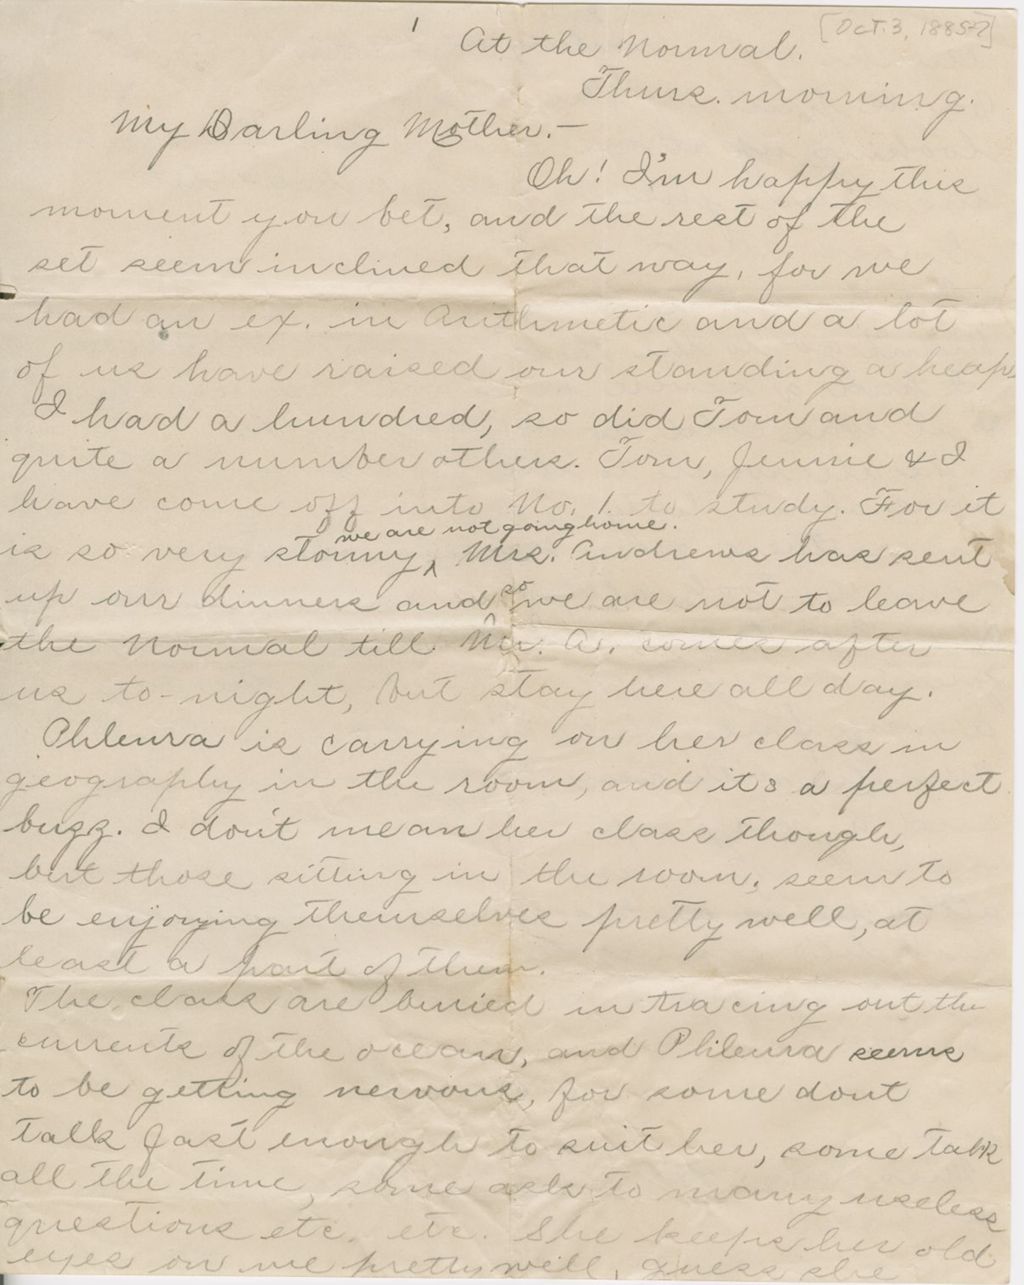 1
[Oct. 3, 1885?]
At the Normal.
Thurs. morning.
My Darling Mother.—
Oh! I'm happy this
moment you bet, and the rest of the
set seem inclined that way, for we
had an ex. in Arithmetic and a lot
of us have raised our standing a heap
I had a hundred, so did Tom and
quite a number others. Tom, Jennie & I
have come off into No. 1. to study. For it
is so very stormy, we are not going home. Mrs. Andrews has sent
up our dinners and so we are not to leave
the Normal till Mr. A. comes after
us to-night, but stay here all day.
Phleura is carrying on her class in
geography in the room, and its a perfect
buzz. I don't mean her class though,
but those sitting in the room, seem to
be enjoying themselves pretty well, at
least a part of them.
The class are buried in tracing out the
currents of the ocean, and Phleura seems
to be getting nervous, for some dont
talk fast enough to suit her, some talk
all the time, some ask to many useless
questions etc. etc. She keeps her old
eyes on me pretty well, guess she